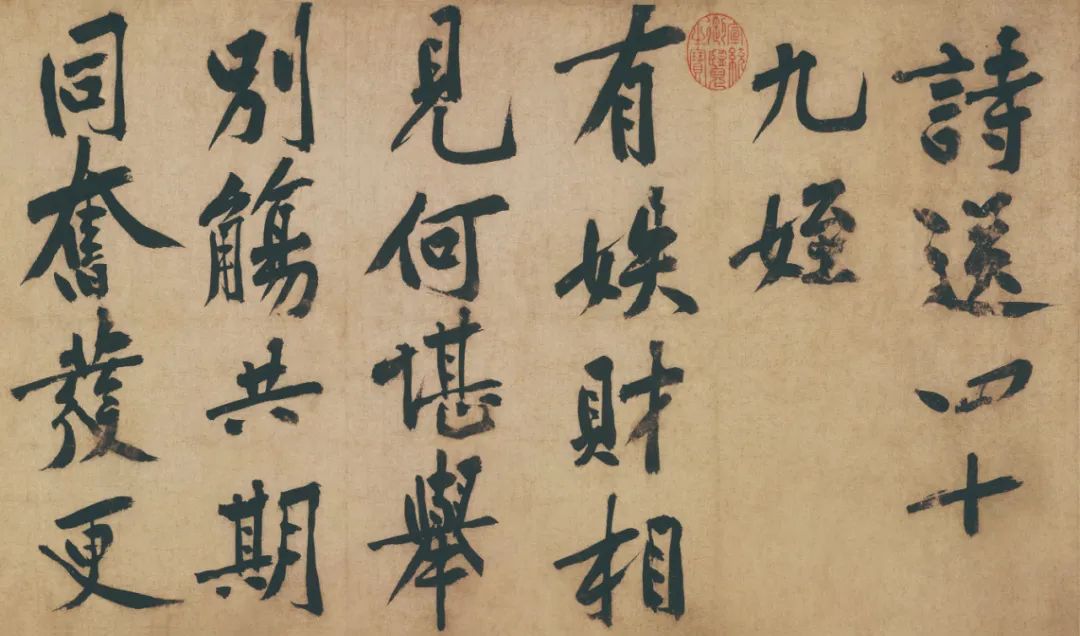 詩送四十
九姪
宣統御覽之寶
有娭財相
見何堪舉
別觴共期
同奮發更